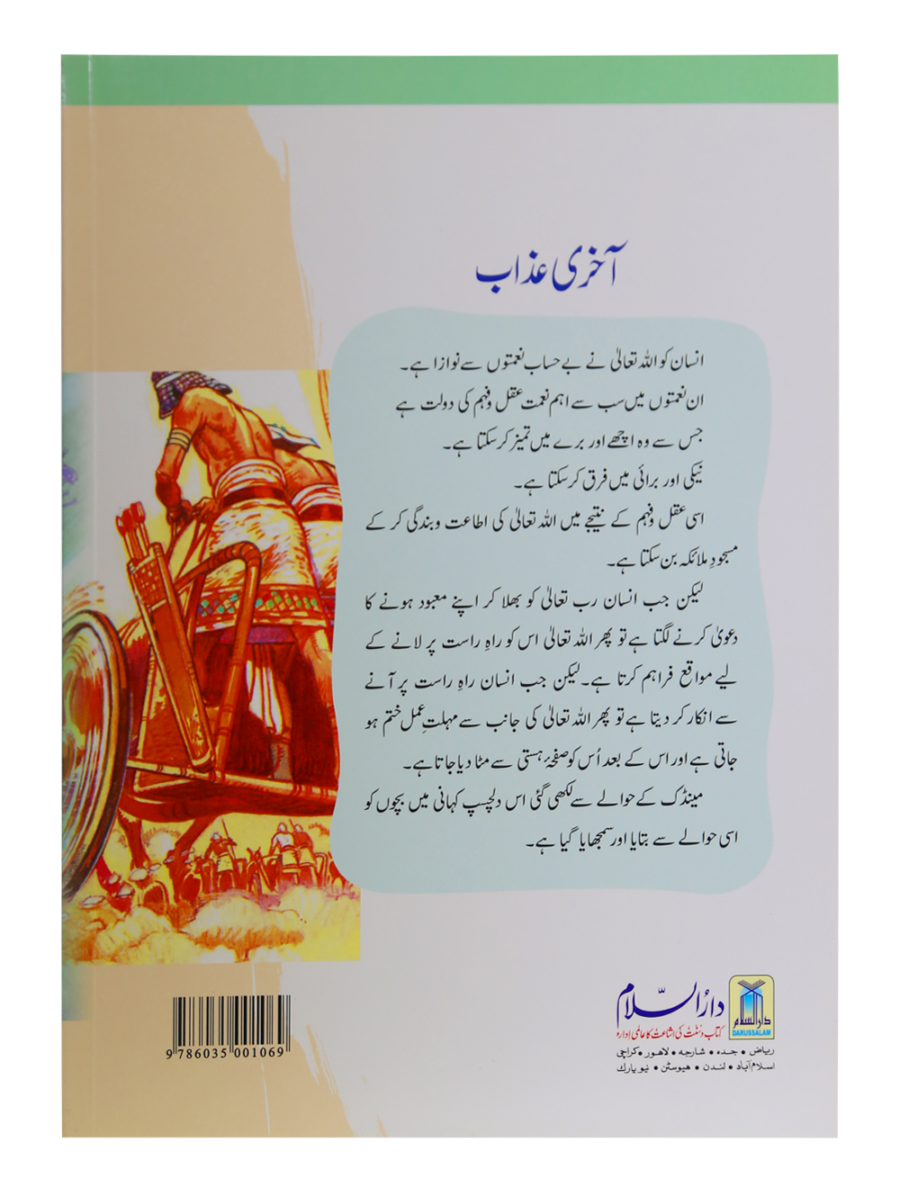 آخری عذاب
انسان کو اللہ تعالیٰ نے بے حساب نعمتوں سے نوازا ہے۔
ان نعمتوں میں سب سے اہم نعمت عقل و فہم کی دولت ہے
جس سے وہ اچھے اور برے میں تمیز کر سکتا ہے۔
نیکی اور برائی میں فرق کر سکتا ہے۔
اسی عقل و فہم کے نتیجے میں اللہ تعالیٰ کی اطاعت و بندگی کر کے
مسجودِ ملائکہ بن سکتا ہے۔
لیکن جب انسان رب تعالیٰ کو بھلا کر اپنے معبود ہونے کا
دعویٰ کرنے لگتا ہے تو پھر اللہ تعالیٰ اس کو راہِ راست پر لانے کے
لیے مواقع فراہم کرتا ہے۔ لیکن جب انسان راہِ راست پر آنے
سے انکار کر دیتا ہے تو پھر اللہ تعالیٰ کی جانب سے مہلتِ عمل ختم ہو
جاتی ہے اور اس کے بعد اُس کو صفحۂ ہستی سے مٹا دیا جاتا ہے۔
مینڈک کے حوالے سے لکھی گئی اس دلچسپ کہانی میں بچوں کو
اسی حوالے سے بتایا اور سمجھایا گیا ہے۔
دارُالسلّام
کتاب و سنّت کی اشاعت کا عالمی ادارہ
ریاض • جدہ • شارجہ • لاہور • کراچی
اسلام آباد • لندن • ہیوسٹن • نیو یارک
دارالسلام
DARUSSALAM
9 786035 001069